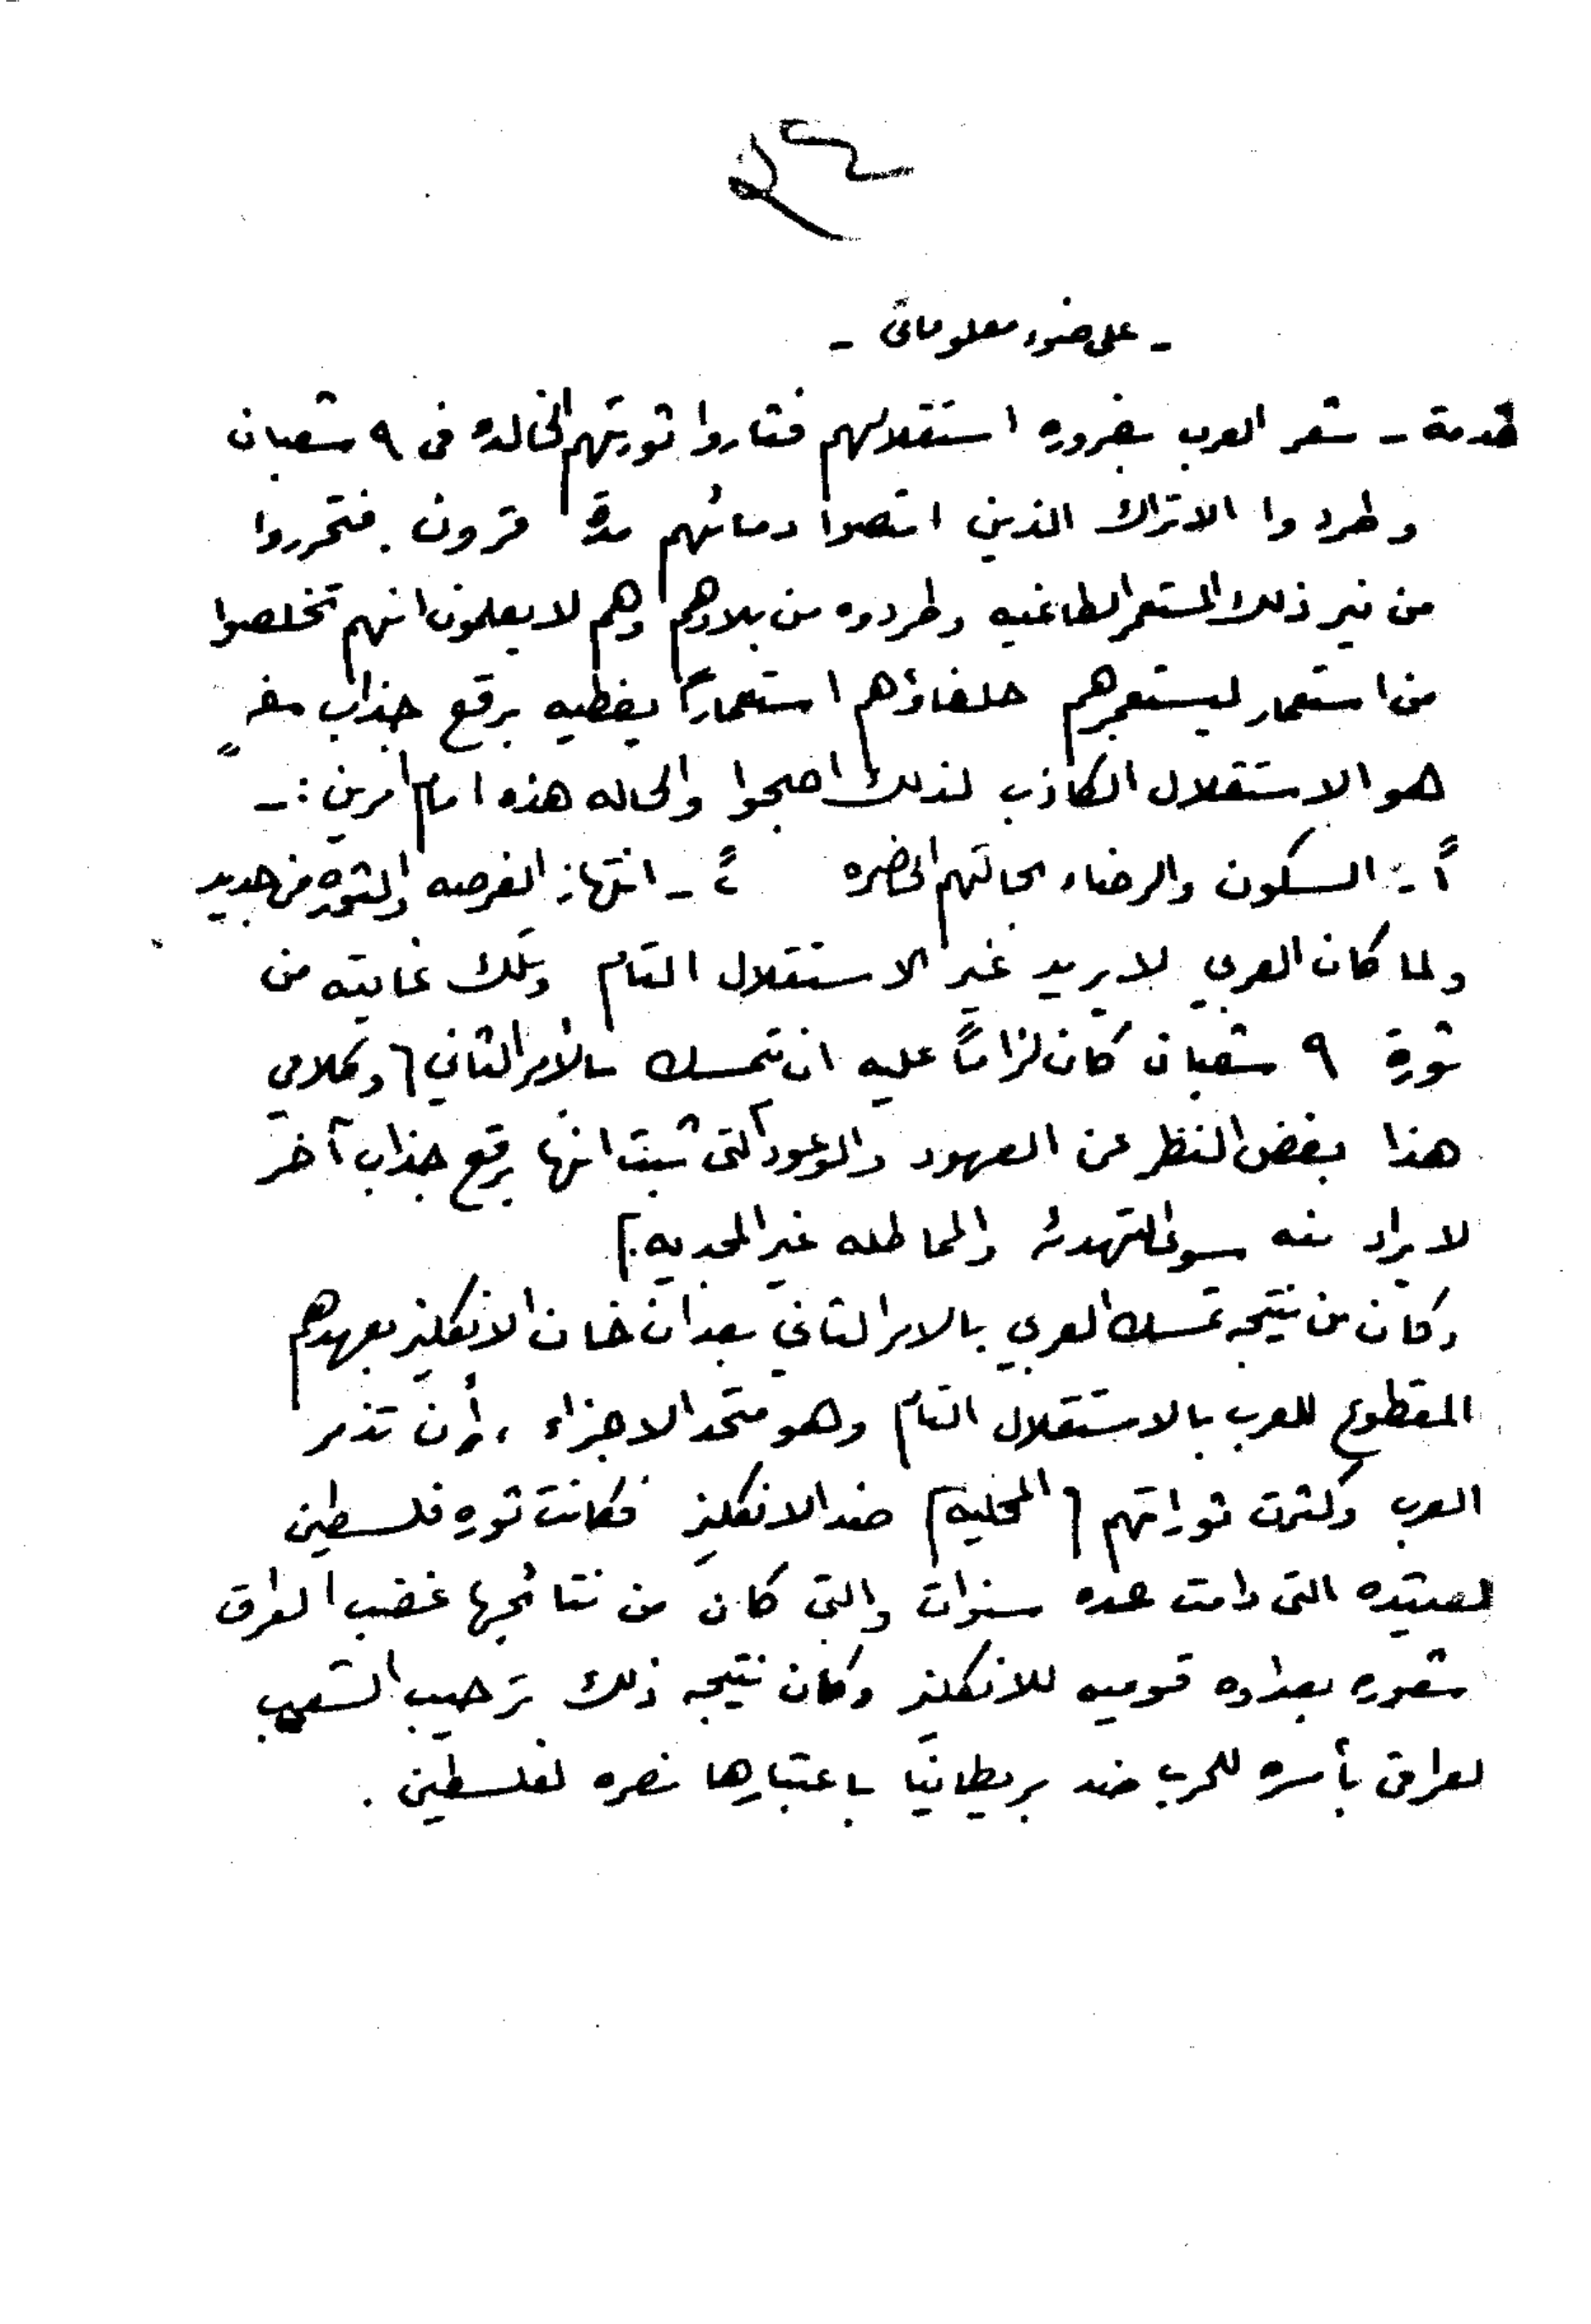 - على ضوء معلوماتى -
قدمة - شعر العرب بضروره استقلالهم فثاروا ثورتهم الخالده فى ٩ شعبان
وطردوا الاتراك الذين امتصوا دمائهم مدة قرون . فتحرروا
من نير ذلك المستعمر الطاغيه وطردوه من بلادهم وهم لا يعلمون انهم تخلصوا
من استعمار ليستعمرهم حلفاؤهم استعماراً يغطيه برقع جذاب
هو الاستقلال الكاذب لذلك اصبحوا والحاله هذه امام امرين :-
اً - السكون والرضاء بحالتهم الحضره ٢ً - انتهاز الفرصه والثوره من جديد
ولما كان العربي لا يريد غير الاستقلال التام وتلك غايته من
ثورة ٩ شعبان كان لزاماً عليه ان يتمسك بالأمر الثاني [ وكلامي
هذا بغض النظر عن العهود والوعود التى ثبت انها برقع جذاب آخر
لا يراد منه سوى التهدئه والمماطله غير المجديه . ]
وكان من نتيجه تمسك العربي بالامر الثاني بعد ان خان الانكليز بعهدهم
المقطوع للعرب بالاستقلال التام وهو متحد الاجزاء ، أن تذمر
العرب وكثرت ثوراتهم [ المحليه ] ضد الانكليز فكانت ثورة فلسطين
لعتيده التى دامت عده سنوات والتي كان من نتائجها غضب العراق
شعوره بعداوه قوميه للانكليز وكان نتيجه ذلك ترحيب الشعب
لعراقى بأسره للحرب ضد بريطانيا باعتبارها نصره لفلسطين .